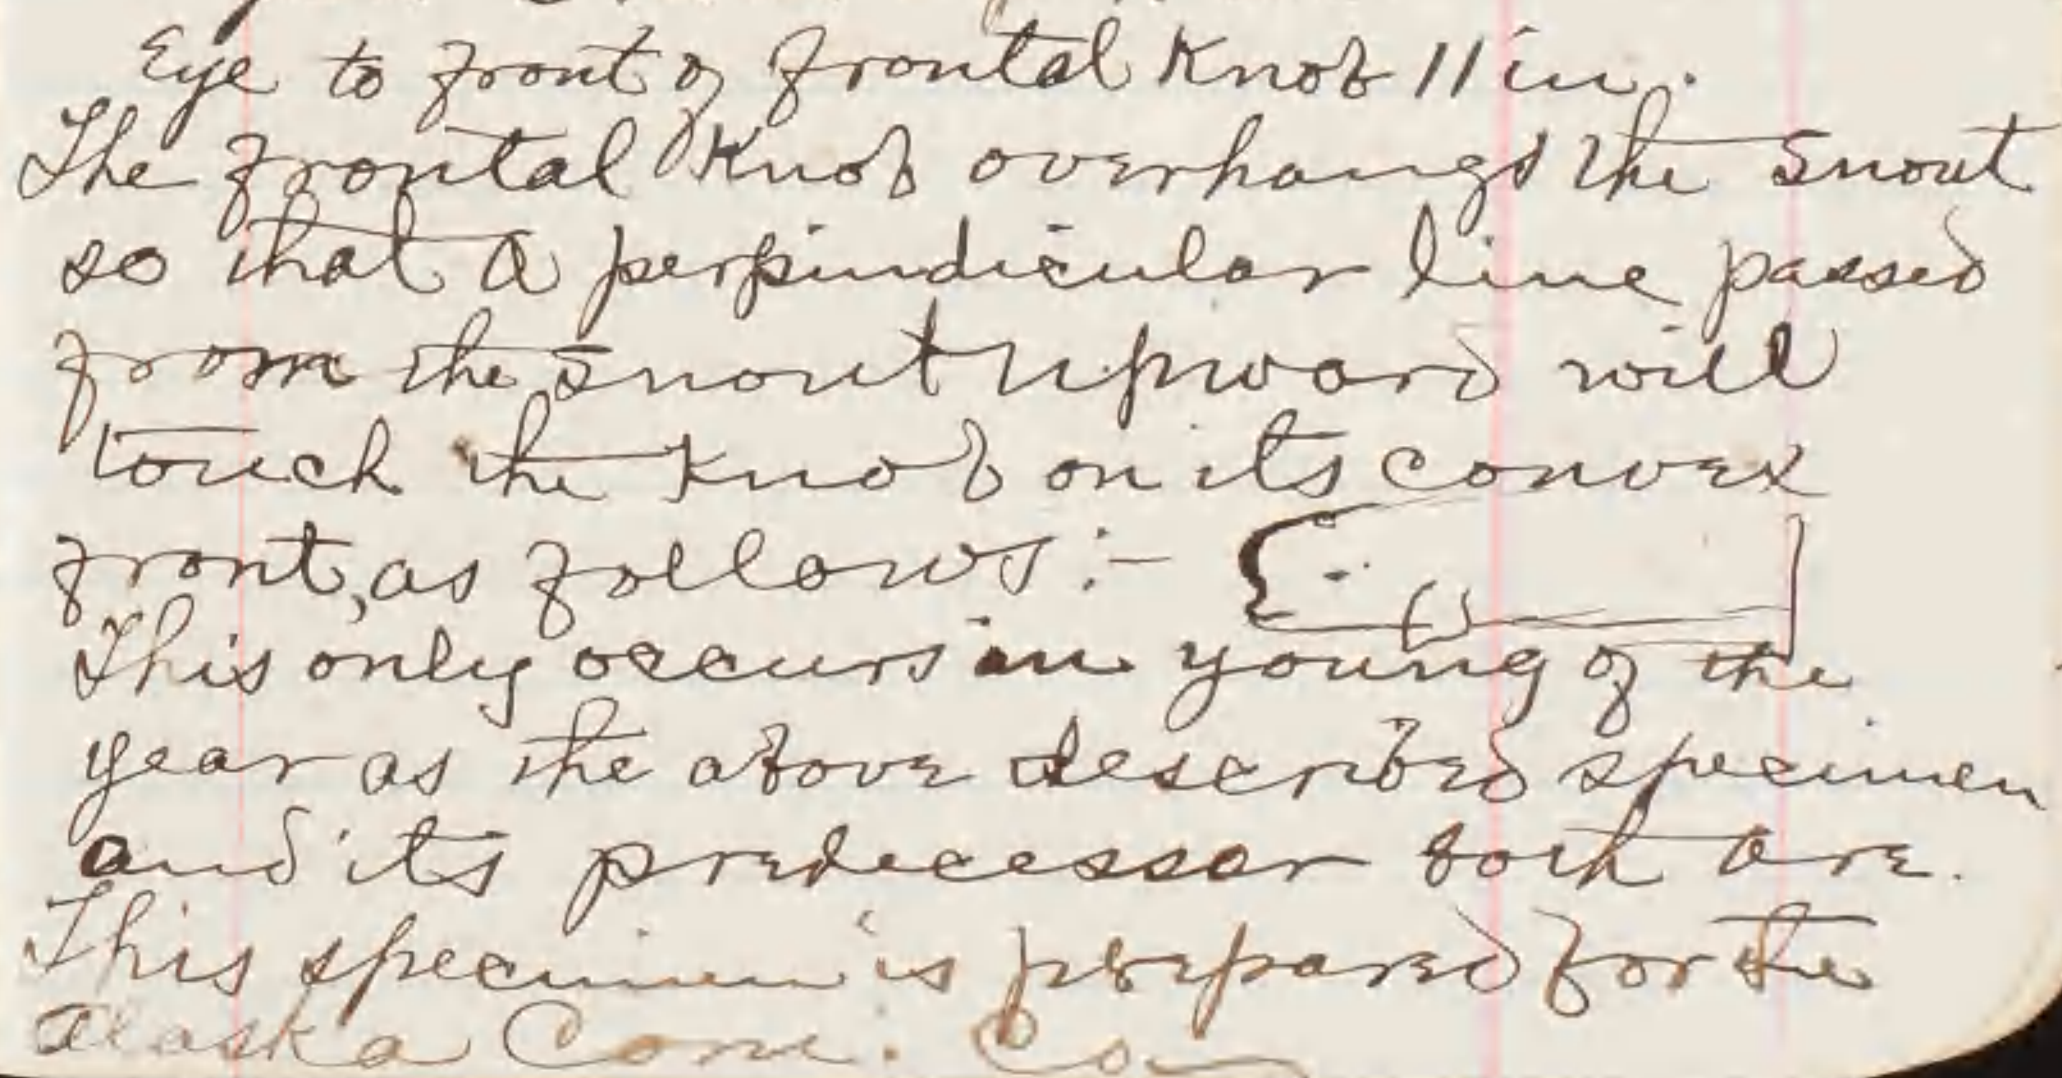 Eye to front of frontal Knob 11 in.
The frontal Knob overhangs the snout
so that a perpindicular line passed
from the snout upward will
touch the Knob on its convex
front, as follows :-
This only occurs in young of the
year as the above described specimen
and its predecessor both are.
This specimen is prepared for the
Alaska Com. Co